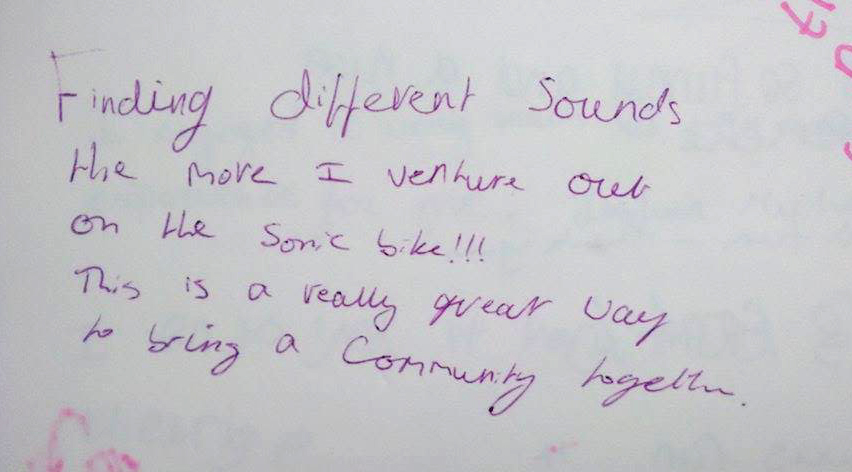 Finding different Sounds
the more I venture out
on the Sonic bike!!!
This is a really great way
to bring a Community together.